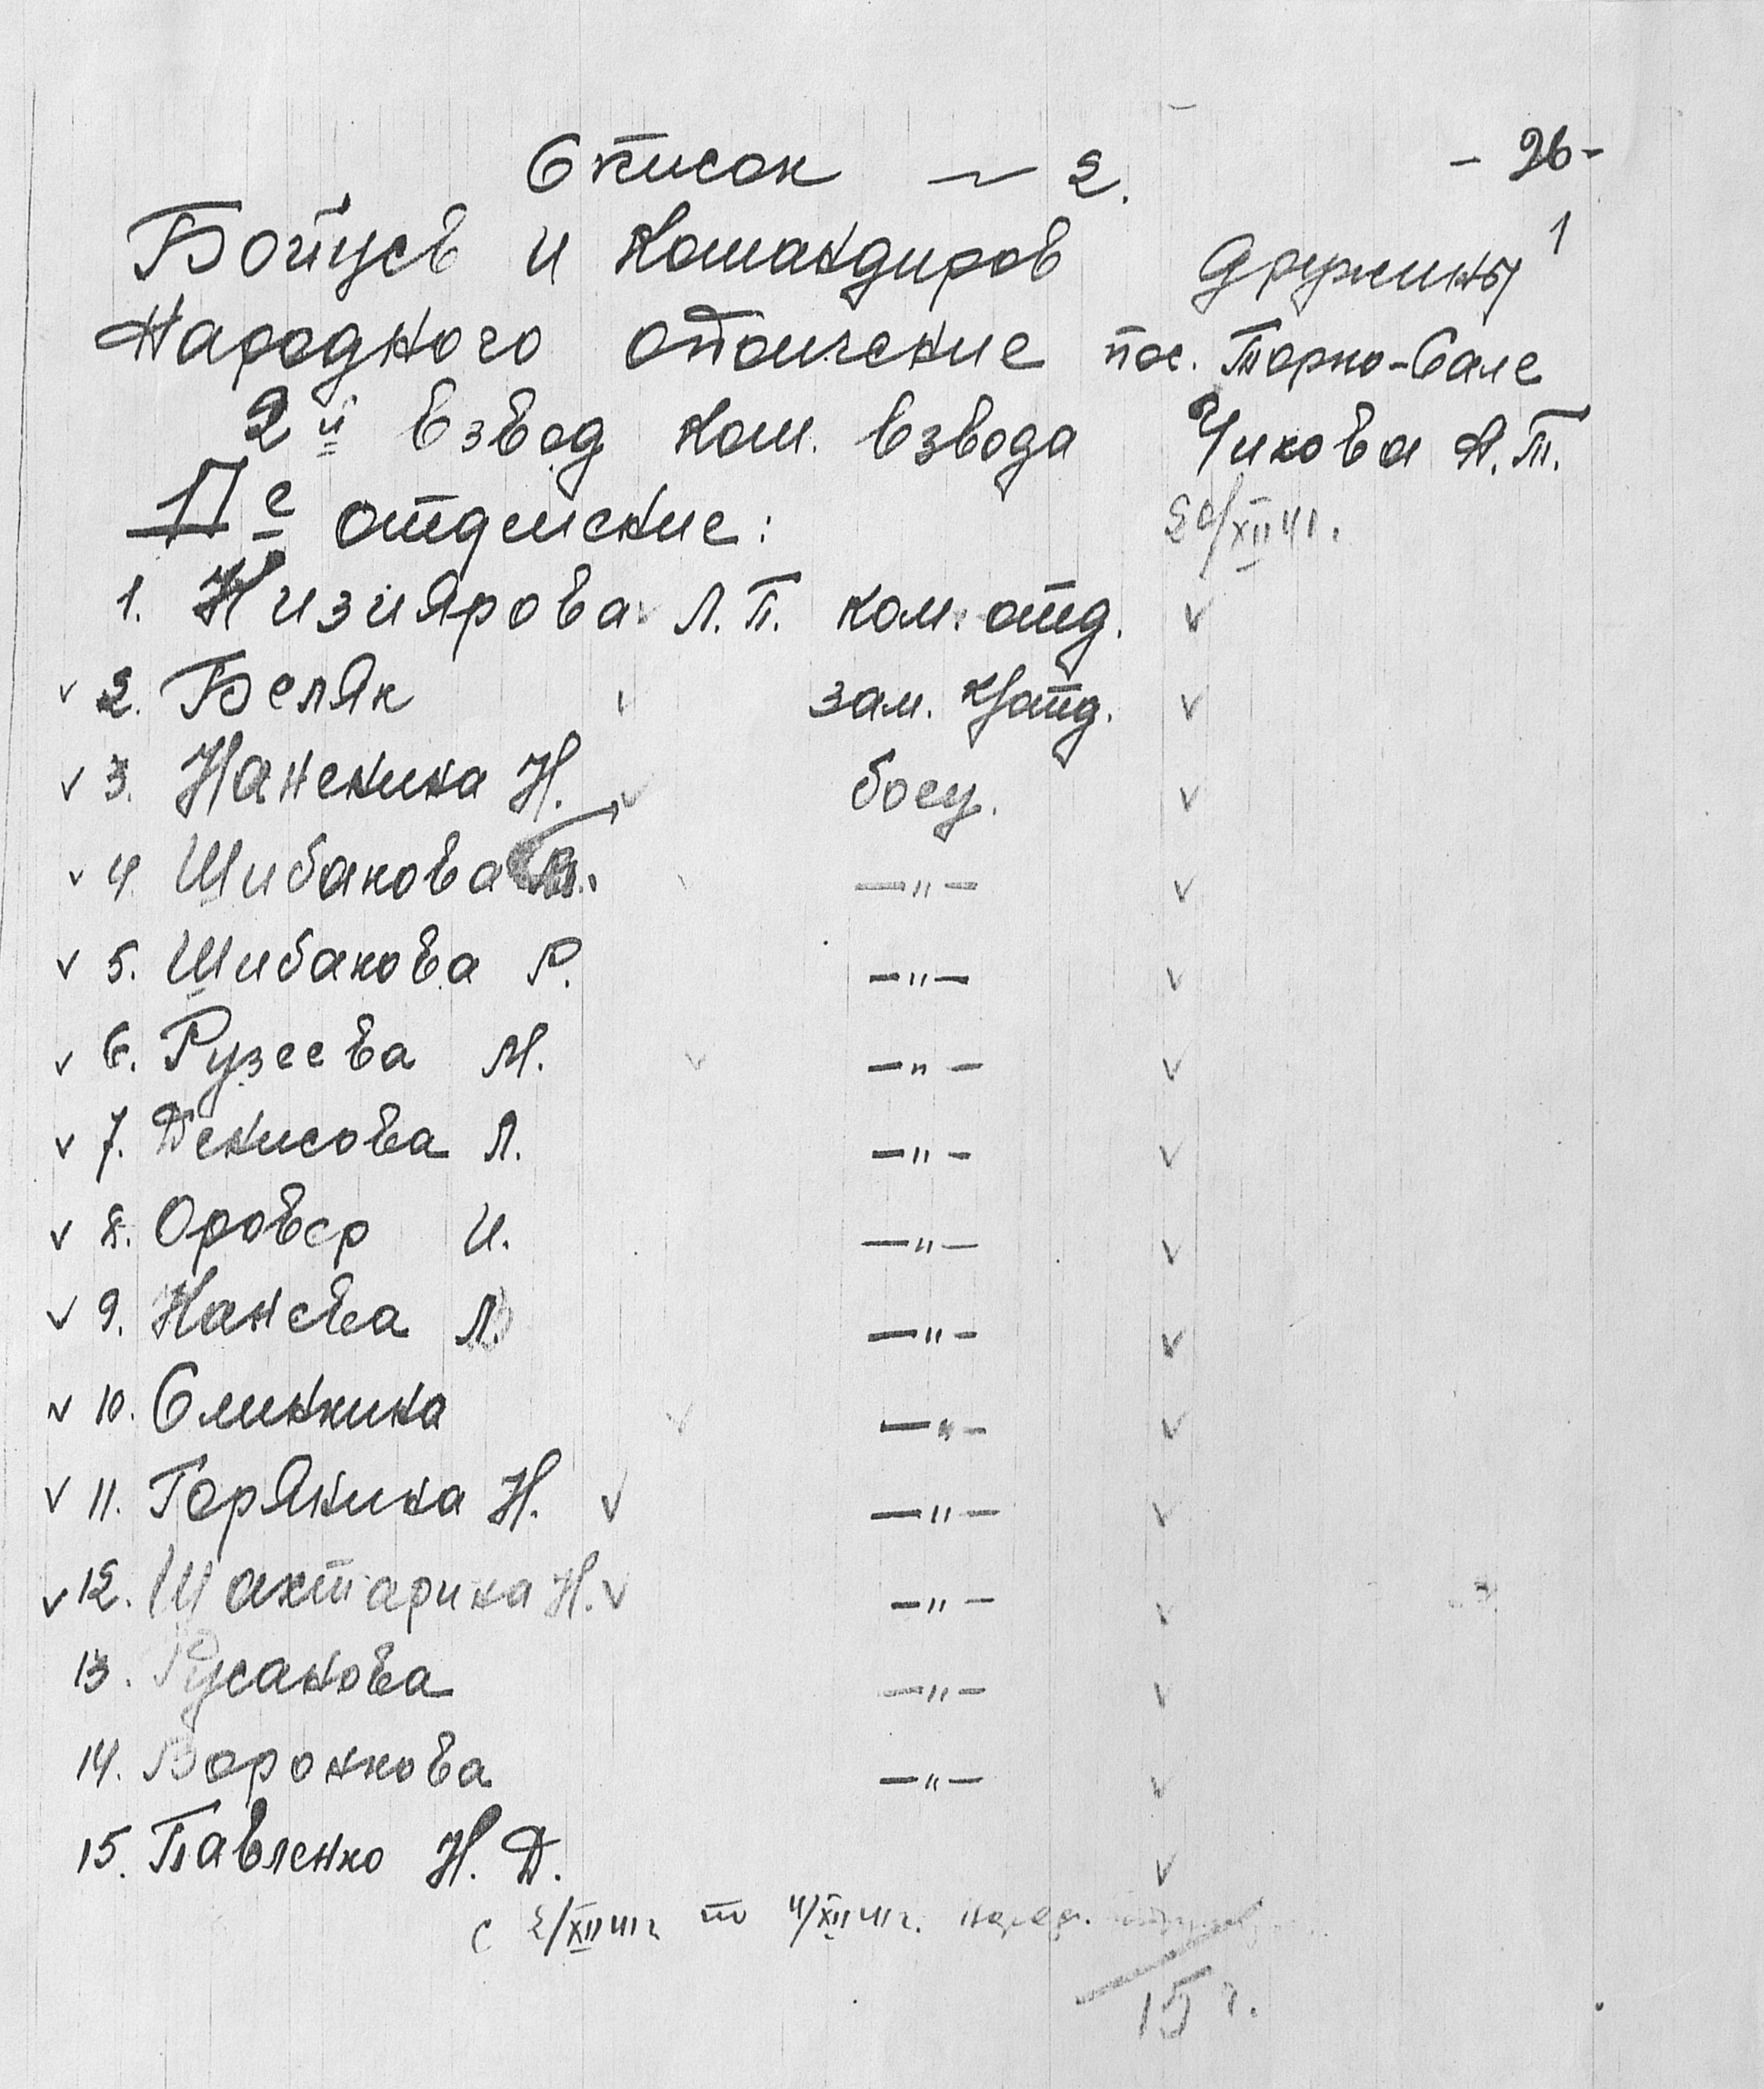 Список № 2. - 26 -
Бойцов и командиров дружины 1
Народного ополчение пос. Тарко-Сале
2й взвод ком. взвода Чикова А.П.
II е отделение:
1. Низиярова Л.П. ком. отд. ✓
✓ 2. Беляк ✓ зам. к/отд. ✓
✓ 3. Нанекина Н. ✓ боец. ✓
✓ 4. Шибакова —"— ✓
✓ 5. Шибакова Р. —"— ✓
✓ 6. Рузеева М. ✓ —"— ✓
✓ 7. Денисова Л. —"— ✓
✓ 8. Оровер И. —"— ✓
✓ 9. Канева Л. —"— ✓
✓ 10. Слинкина ✓ —"— ✓
✓ 11. Горякина Н. ✓ —"— ✓
✓ 12. Шахтарина Н. ✓ —"— ✓
13. Русакова —"— ✓
14. Воронкова —"— ✓
15. Павленко Н. Д. ✓
с 2/XII 41г по 4/XII 41г.
15 ч.